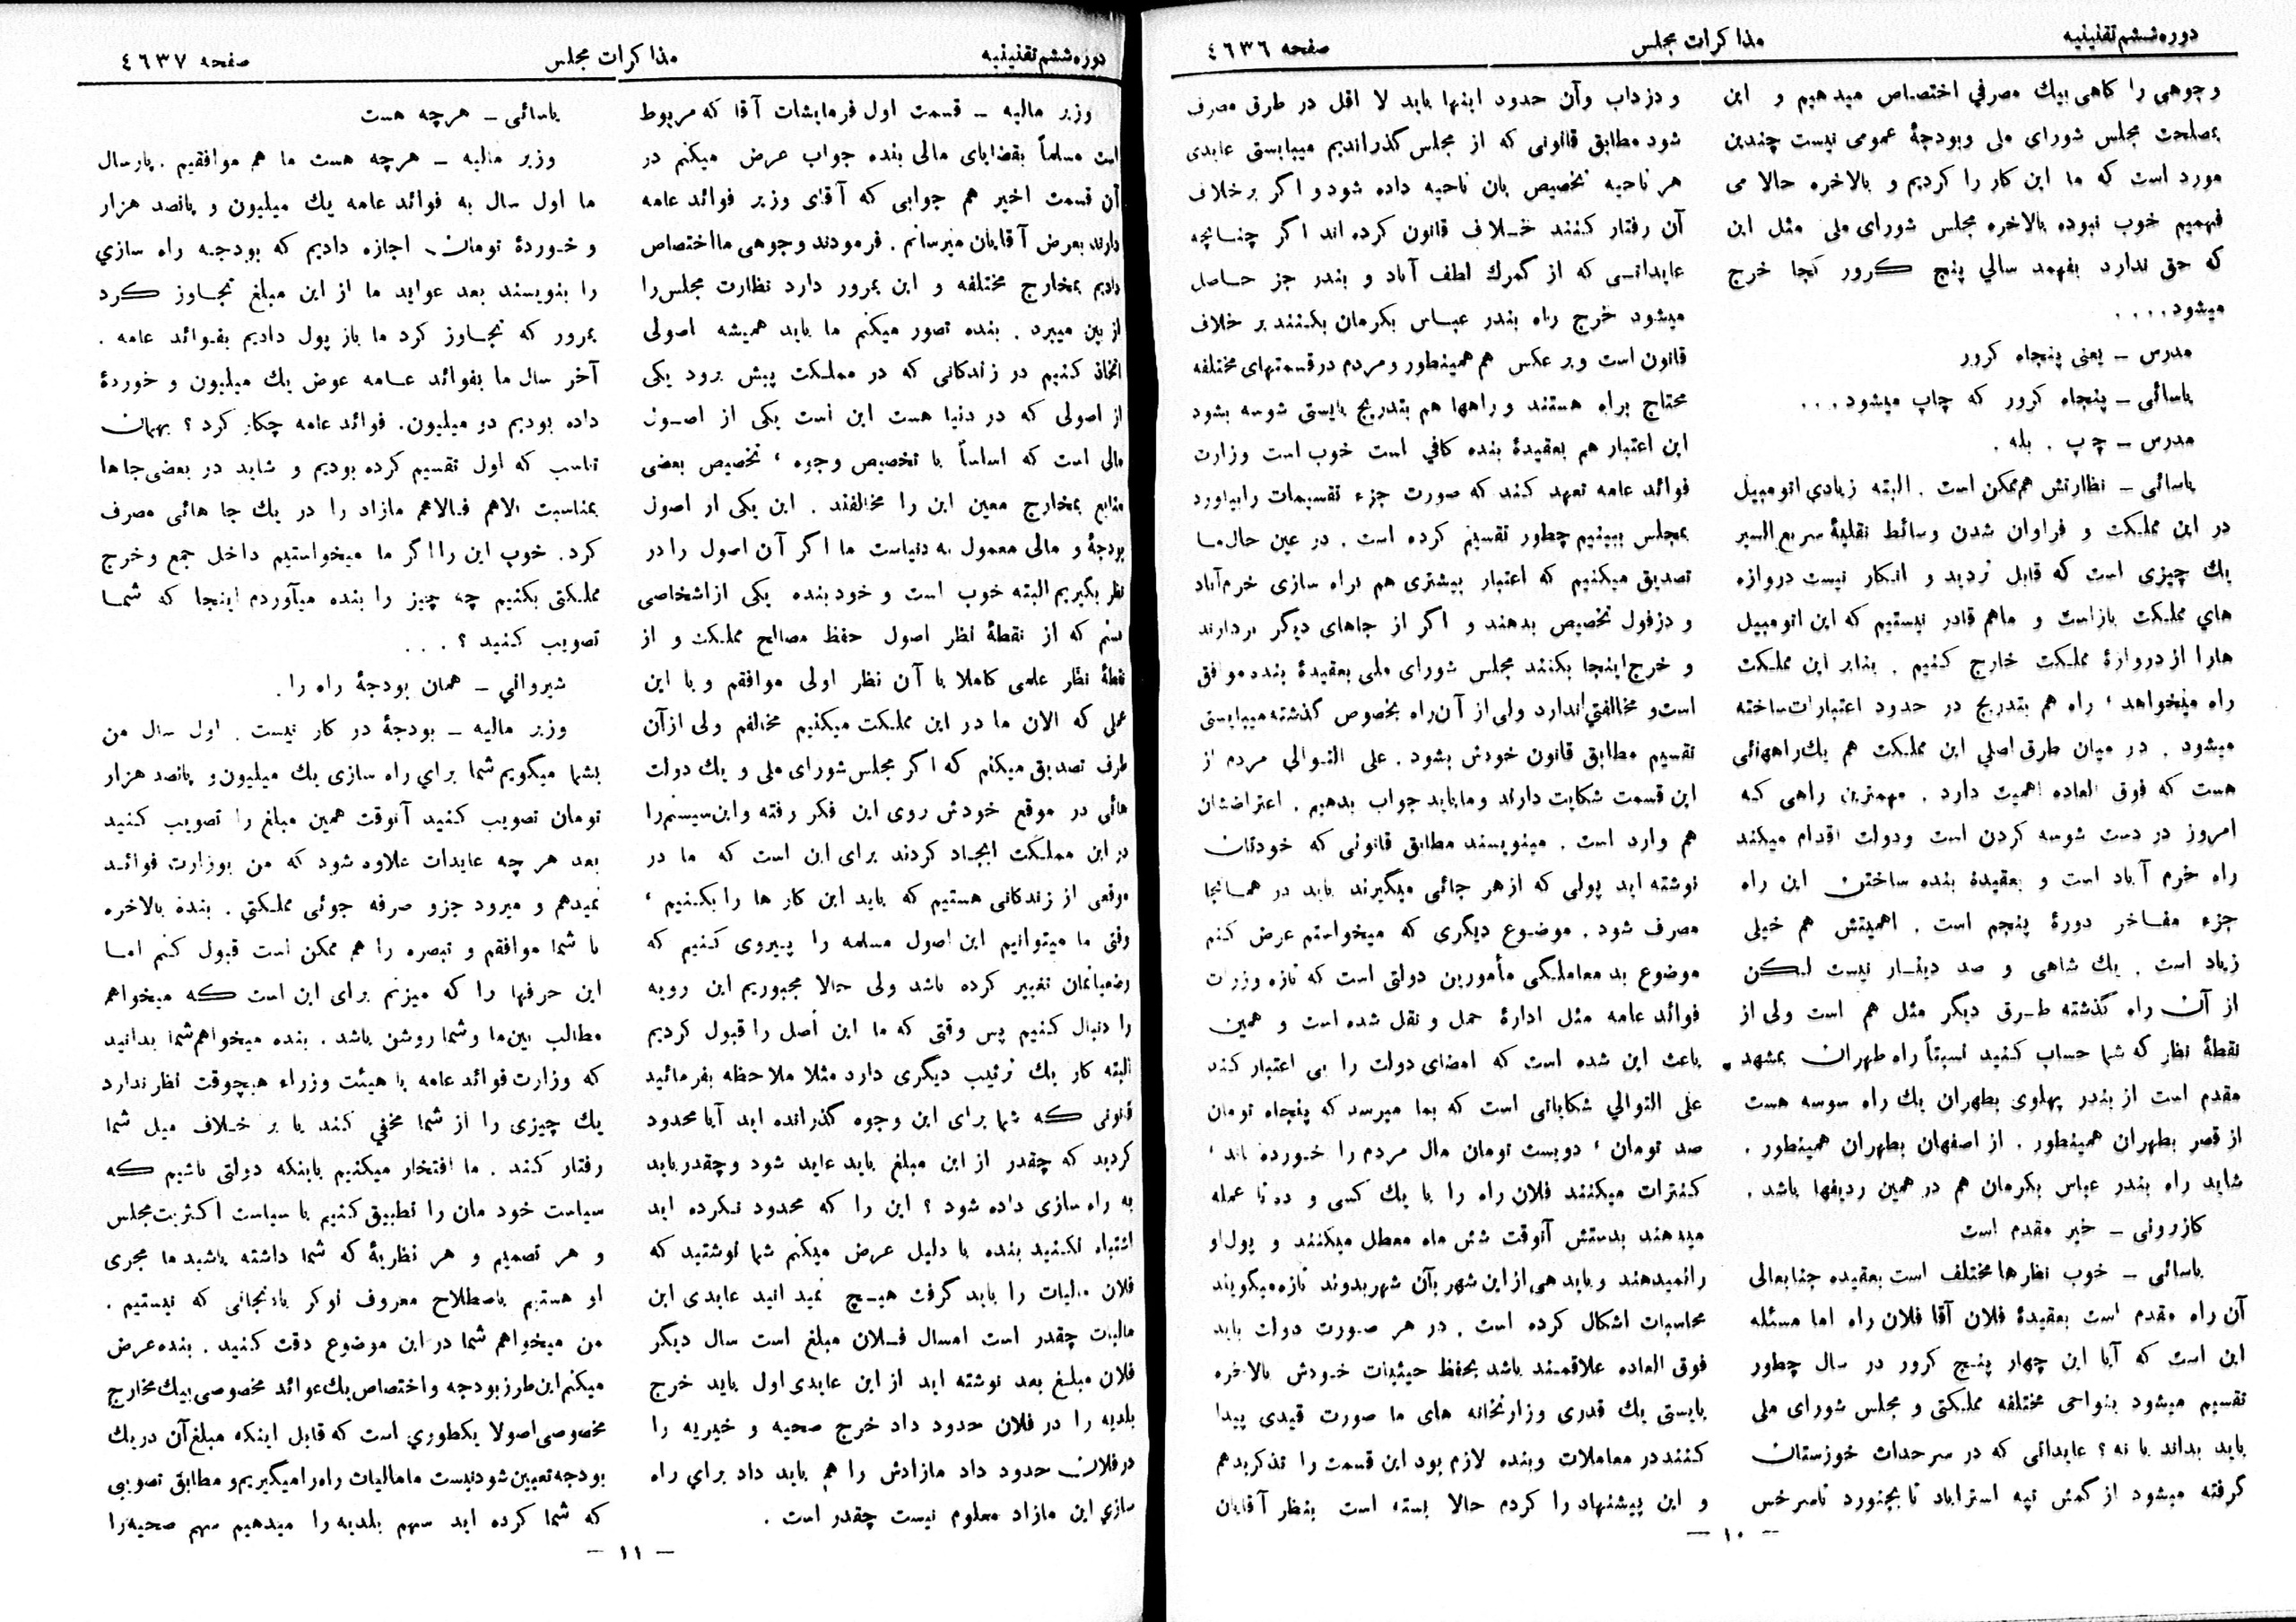 دوره ششم تقنینیه
مذاکرات مجلس
صفحه ٤٦٣٦
وجوهی را کاهی بیك مصرفي اختصاص میدهیم و این
بمصلحت مجلس شورای ملی وبودجهٔ عمومی نیست چندین
مورد است که ما این کار را کردیم و بالاخره حالا می
فهمیم خوب نبوده بالاخره مجلس شورای ملی مثل این
که حق ندارد بفهمد سالي پنج کرور کجا خرج
میشود....
مدرس ــ یعنی پنجاه کرور
یاسائی ــ پنجاه کرور که چاپ میشود...
مدرس ــ چپ . بله .
یاسائی ــ نظارتش هم ممکن است . البته زیادي اتومبیل
در این مملکت و فراوان شدن وسائط نقلیهٔ سریع السیر
یك چیزی است که قابل تردید و انکار نیست دروازه
هاي مملکت بازاست و ماهم قادر نیستیم که این اتومبیل
هارا از دروازهٔ مملکت خارج کنیم . بنابر این مملکت
راه میخواهد ، راه هم بتدریج در حدود اعتبارات ساخته
میشود . در میان طرق اصلي این مملکت هم یك راههائی
هست که فوق العاده اهمیت دارد . مهمترین راهی که
امروز در دست شوسه کردن است ودولت اقدام میکند
راه خرم آباد است و بعقیدهٔ بنده ساختن این راه
جزء مفاخر دورهٔ پنجم است . اهمیتش هم خیلی
زیاد است . یك شاهی و صد دینار نیست لیکن
از آن راه گذشته طرق دیگر مثل هم است ولی از
نقطهٔ نظر که شما حساب کنید نسبتاً راه طهران بمشهد
مقدم است از بندر پهلوی بطهران یك راه سوسه هست
از قصر بطهران همینطور . از اصفهان بطهران همینطور .
شاید راه بندر عباس بکرمان هم در همین ردیفها باشد .
کازرونی ــ خیر مقدم است
یاسائی ــ خوب نظرها مختلف است بعقیده جنابعالی
آن راه مقدم است بعقیدهٔ فلان آقا فلان راه اما مسئله
این است که آیا این چهار پنج کرور در سال چطور
تقسیم میشود بنواحی مختلفه مملکتی و مجلس شورای ملی
باید بداند یا نه ؟ عایداتی که در سرحدات خوزستان
گرفته میشود از گمش تپه استراباد تا بجنورد تاسرخس
و دزداب وآن حدود اینها باید لا اقل در طرق مصرف
شود مطابق قانونی که از مجلس گذراندیم میبایستی عایدی
هر ناحیه تخصیص بان ناحیه داده شود و اگر برخلاف
آن رفتار کنند خلاف قانون کرده اند اگر چنانچه
عایداتی که از گمرك لطف آباد و بندر جز حاصل
میشود خرج راه بندر عباس بکرمان بکنند بر خلاف
قانون است وبر عکس هم همینطور ومردم درقسمتهای مختلفه
محتاج براه هستند و راهها هم بتدریج بایستی شوسه بشود
این اعتبار هم بعقیدهٔ بنده کافي است خوب است وزارت
فوائد عامه تعهد کند که صورت جزء تقسیمات رابیاورد
بمجلس ببینیم چطور تقسیم کرده است . در عین حال ما
تصدیق میکنیم که اعتبار بیشتری هم براه سازی خرم آباد
و دزفول تخصیص بدهند و اگر از جاهای دیگر بردارند
و خرج اینجا بکنند مجلس شورای ملی بعقیدهٔ بنده موافق
است و مخالفتي ندارد ولی از آن راه بخصوص گذشته میبایستی
تقسیم مطابق قانون خودش بشود . علی التوالي مردم از
این قسمت شکایت دارند وماباید جواب بدهیم . اعتراضشان
هم وارد است . مینویسند مطابق قانونی که خودتان
نوشته اید پولی که ازهر جائی میگیرند باید در همانجا
مصرف شود . موضوع دیگری که میخواستم عرض کنم
موضوع بد معاملگی مأمورین دولتی است که تازه وزرات
فوائد عامه مثل ادارهٔ حمل و نقل شده است و همین
باعث این شده است که امضای دولت را بی اعتبار کند
علی التوالي شکایاتی است که بما میرسد که پنجاه تومان
صد تومان ، دویست تومان مال مردم را خورده اند ،
کنترات میکنند فلان راه را با یك کسی و ده تا عمله
میدهند بدستش آنوقت شش ماه معطل میکنند و پول او
رانمیدهند و باید هی از این شهر بآن شهر بدوند تازه میگویند
محاسبات اشکال کرده است . در هر صورت دولت باید
فوق العاده علاقمند باشد بحفظ حیثیات خودش بالاخره
بایستی یك قدری وزارتخانه های ما صورت قیدی پیدا
کنند در معاملات وبنده لازم بود این قسمت را تذکر بدهم
و این پیشنهاد را کردم حالا بسته است بنظر آقایان
ــ ١٠ ــ
دوره ششم تقنینیه
مذاکرات مجلس
صفحه ٤٦٣٧
وزیر مالیه ــ قسمت اول فرمایشات آقا که مربوط
است مسلماً بقضایای مالی بنده جواب عرض میکنم در
آن قسمت اخیر هم جوابی که آقای وزیر فوائد عامه
دارند بعرض آقایان میرسانم . فرمودند وجوهی ما اختصاص
دادیم بمخارج مختلفه و این بمرور دارد نظارت مجلس را
از بین میبرد . بنده تصور میکنم ما باید همیشه اصولی
اتخاذ کنیم در زندکانی که در مملکت پیش برود یکی
از اصولی که در دنیا هست این است یکی از اصول
مالی است که اساساً با تخصیص وجوه ، تخصیص بعضی
منابع بمخارج معین این را مخالفند . این یکی از اصول
بودجهٔ و مالی معمول به دنیاست ما اگر آن اصول را در
نظر بگیریم البته خوب است و خود بنده یکی ازاشخاصی
هستم که از نقطهٔ نظر اصول حفظ مصالح مملکت و از
نقطهٔ نظر علمی کاملا با آن نظر اولی موافقم و با این
عملی که الان ما در این مملکت میکنیم مخالفم ولی ازآن
طرف تصدیق میکنم که اگر مجلس شورای ملی و یك دولت
هائی در موقع خودش روی این فکر رفته واین سیستم را
در این مملکت ایجاد کردند برای این است که ما در
موقعی از زندکانی هستیم که باید این کار ها را بکنیم ،
وقتی ما میتوانیم این اصول مسلمه را پیروی کنیم که
وضعیاتمان تغییر کرده باشد ولی حالا مجبوریم این رویه
را دنبال کنیم پس وقتی که ما این اصل را قبول کردیم
البته کار یك ترتیب دیگری دارد مثلا ملاحظه بفرمائید
قانونی که شما برای این وجوه گذرانده اید آیا محدود
کردید که چقدر از این مبلغ باید عاید شود و چقدر باید
به راه سازی داده شود ؟ این را که محدود نکرده اید
اشتباه نکنید بنده با دلیل عرض میکنم شما نوشتید که
فلان مالیات را باید گرفت هیچ نمیدانید عایدی این
مالیات چقدر است امسال فلان مبلغ است سال دیگر
فلان مبلغ بعد نوشته اید از این عایدی اول باید خرج
بلدیه را در فلان حدود داد خرج صحیه و خیریه را
در فلان حدود داد مازادش را هم باید داد براي راه
سازي این مازاد معلوم نیست چقدر است .
یاسائی ــ هرچه هست
وزیر مالیه ــ هرچه هست ما هم موافقیم . پارسال
ما اول سال به فوائد عامه یك میلیون و پانصد هزار
و خوردهٔ تومان اجازه دادیم که بودجه راه سازي
را بنویسند بعد عواید ما از این مبلغ تجاوز کرد
بمرور که تجاوز کرد ما باز پول دادیم بفوائد عامه .
آخر سال ما بفوائد عامه عوض یك میلیون و خوردهٔ
داده بودیم دو میلیون . فوائد عامه چکار کرد ؟ بهمان
تناسب که اول تقسیم کرده بودیم و شاید در بعضی جاها
بمناسبت الاهم فالاهم مازاد را در یك جا هائی مصرف
کرد . خوب این را اگر ما میخواستیم داخل جمع و خرج
مملکتی بکنیم چه چیز را بنده میآوردم اینجا که شما
تصویب کنید ؟ . . .
شیرواني ــ همان بودجهٔ راه را .
وزیر مالیه ــ بودجهٔ در کار نیست . اول سال من
بشما میگویم شما براي راه سازی یك میلیون و پانصد هزار
تومان تصویب کنید آنوقت همین مبلغ را تصویب کنید
بعد هر چه عایدات علاوه شود که من بوزارت فوائد
نمیدهم و میرود جزو صرفه جوئی مملکتي . بنده بالاخره
با شما موافقم و تبصره را هم ممکن است قبول کنم اما
این حرفها را که میزنم برای این است که میخواهم
مطالب بین ما وشما روشن باشد . بنده میخواهم شما بدانید
که وزارت فوائد عامه یا هیئت وزراء هیچوقت نظر ندارد
یك چیزی را از شما مخفي کند یا بر خلاف میل شما
رفتار کند . ما افتخار میکنیم باینکه دولتی باشیم که
سیاست خود مان را تطبیق کنیم با سیاست اکثریت مجلس
و هر تصمیم و هر نظریهٔ که شما داشته باشید ما مجری
او هستیم باصطلاح معروف نوکر بادنجانی که نیستیم .
من میخواهم شما در این موضوع دقت کنید . بنده عرض
میکنم این طرز بودجه و اختصاص یك عوائد مخصوصی بیك مخارج
مخصوصی اصولا یکطوري است که قابل اینکه مبلغ آن در یك
بودجه تعیین شود نیست ما مالیات راه را میگیریم و مطابق تصویبی
که شما کرده اید سهم بلدیه را میدهیم سهم صحیه را
ــ ١١ ــ